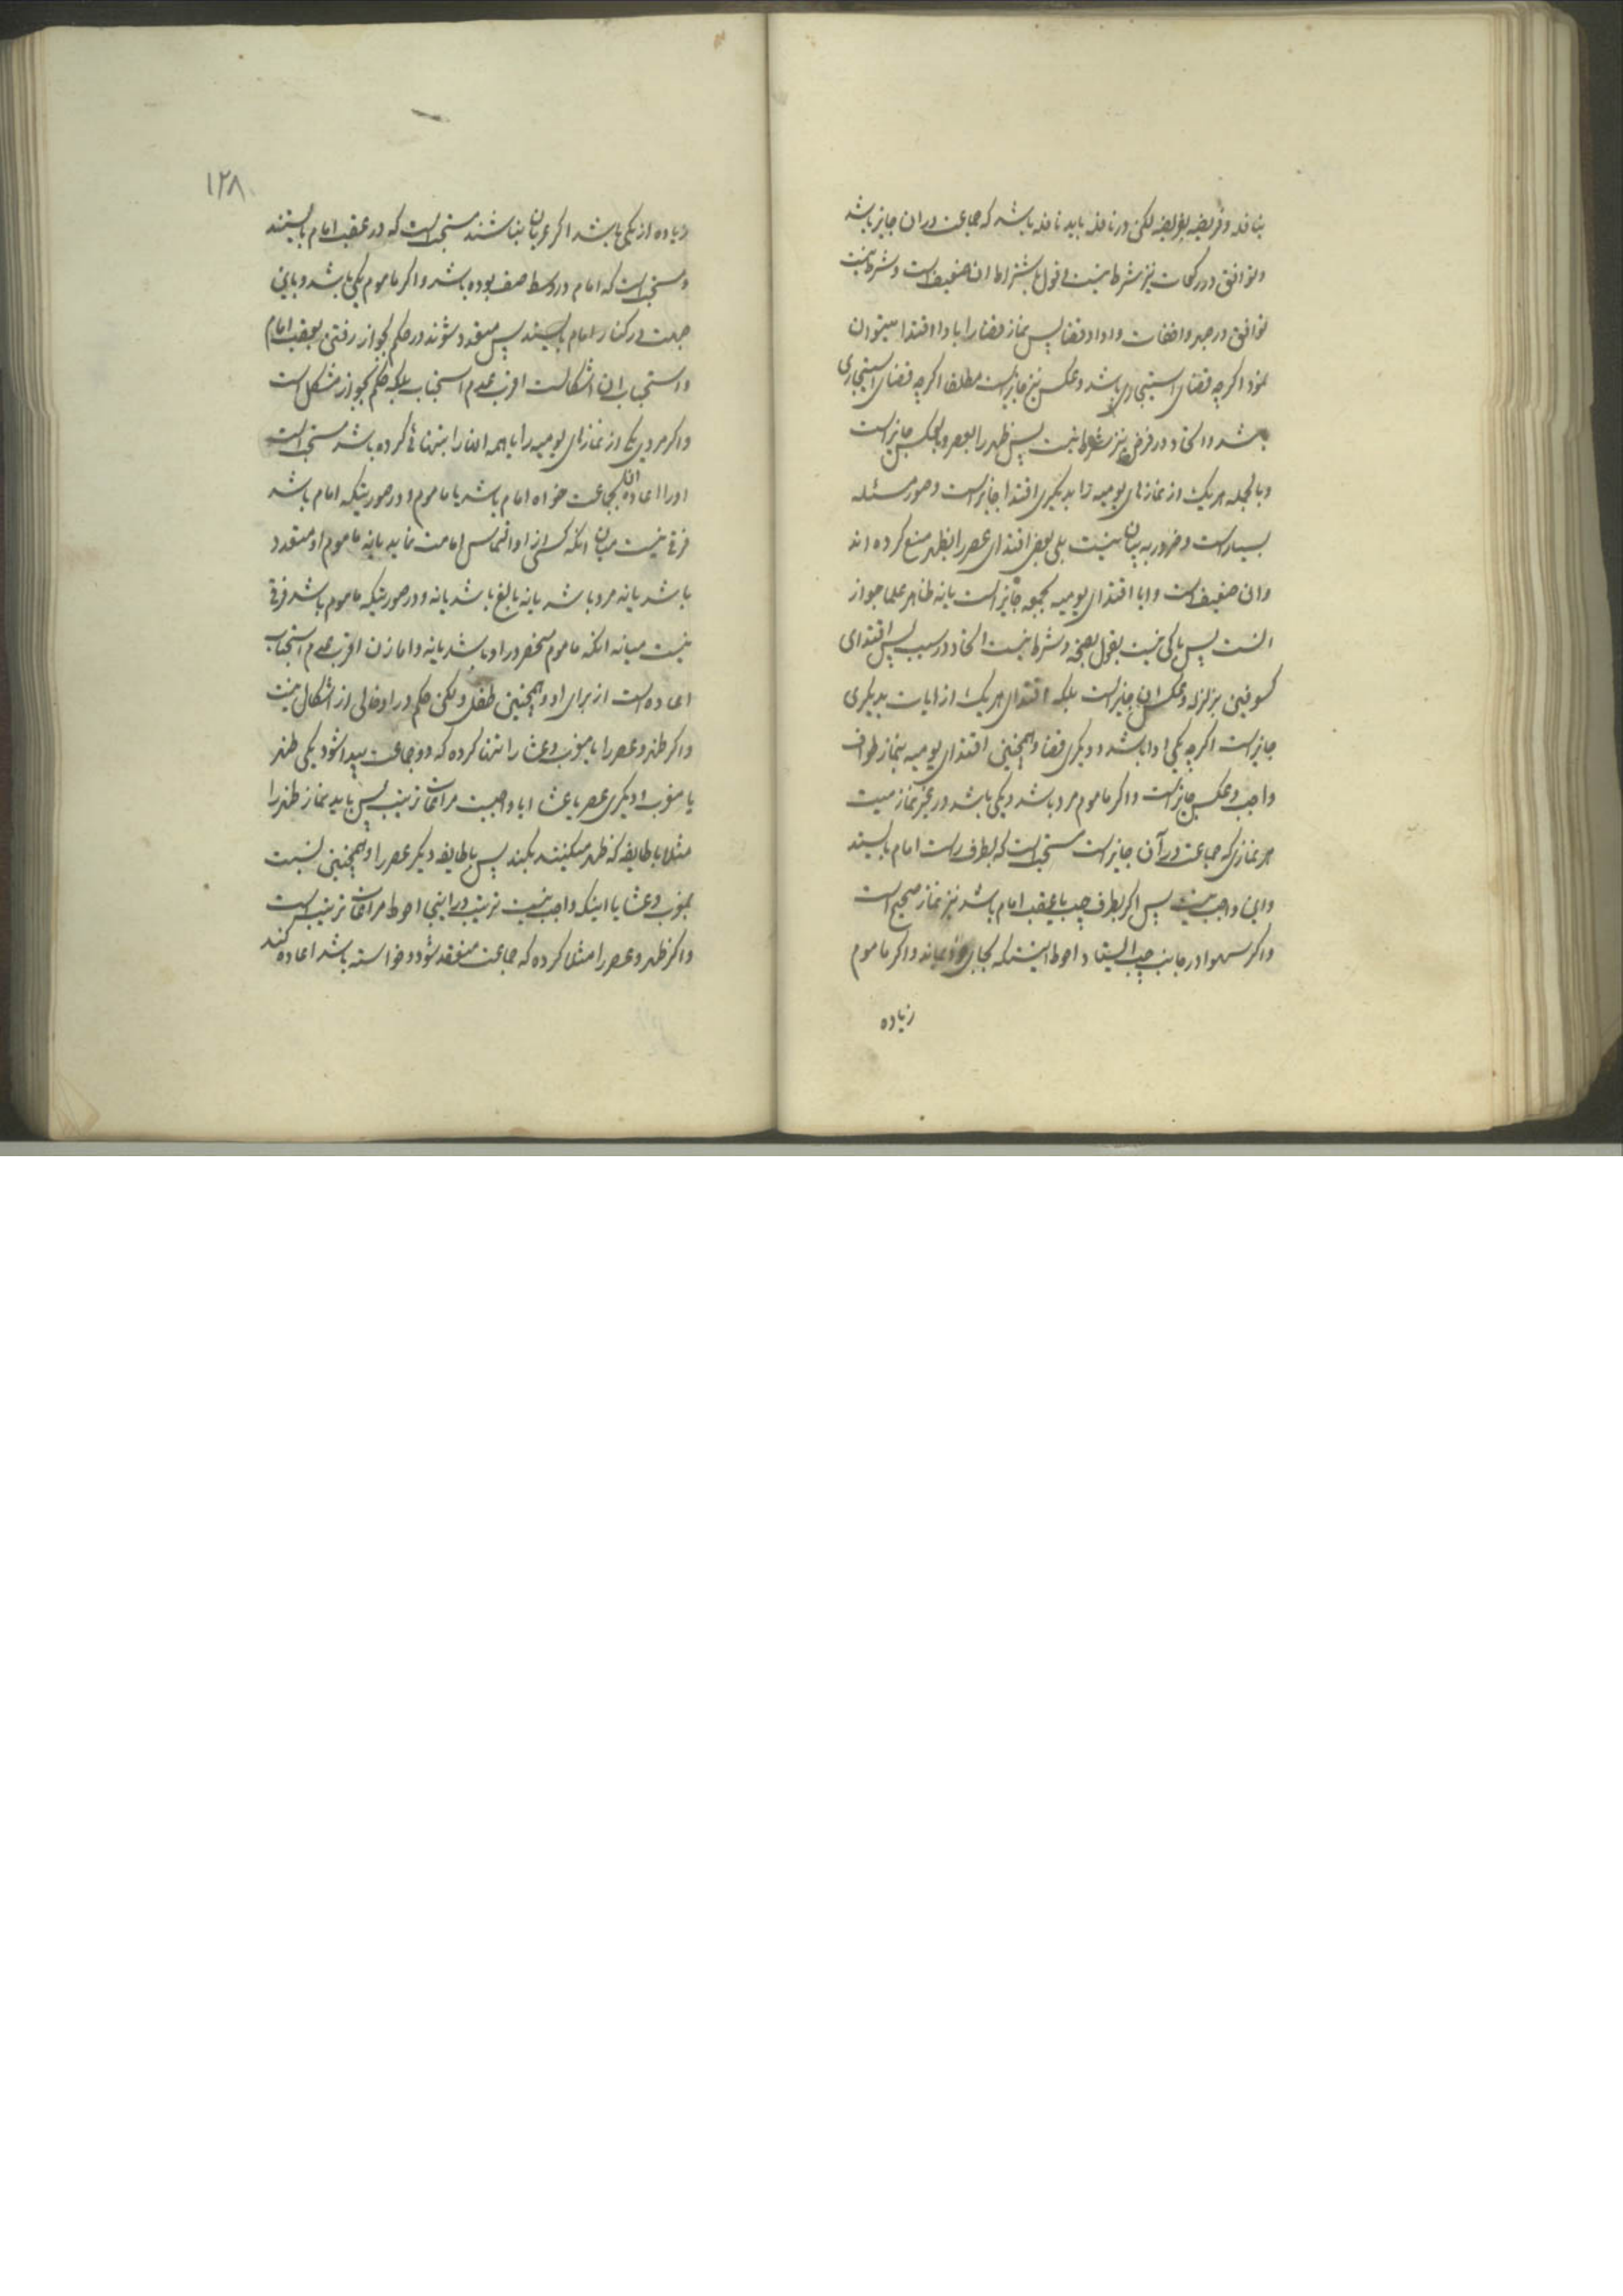 بنافله وفریضه بفریضه لکن در نافله باید نافله باشد که جماعت در ان جایز باشد
وتوافق در رکعات نیز شرط نیست وقول باشتراط ان ضعیف است وشرط نیست
توافق در جهر واخفات وادا وقضا پس نماز قضا را بادا اقتدا میتوان
نمود اگرچه قضای استیجاری باشد وعکس نیز جایز است مطلقا اگرچه قضای استیجاری
باشد واتحاد در فرض نیز شرط نیست پس ظهر را بعصر وبالعکس جایز است
وبالجمله هر یک از نمازهای یومیه را بدیگری اقتدا جایز است وصور مسئله
بسیار است وضرور به بیان نیست بلی بعضی اقتدای عصر را بظهر منع کرده اند
وان ضعیف است وایا اقتدای یومیه بجمعه جایز است یانه ظاهر علما جواز
انست پس باکی نیست بقول بصحه وشرط نیست اتحاد در سبب پس اقتدای
کسوفین بزلزله وعکس ان جایز است بلکه اقتدای هر یک از ایات بدیگری
جایز است اگرچه یکی ادا باشد ودیگری قضا وهمچنین اقتدای یومیه بنماز طواف
واجب وعکس جایز است واگر ماموم مرد باشد ویکی باشد در غیر نماز میت
هر نمازی که جماعت در آن جایز است مستحب است که بطرف راست امام بایستد
واین واجب نیست پس اگر بطرف چپ یا عقب امام باشد نیز نماز صحیح است
واگر سهوا در جانب چپ ایستاد احوط اینست که بجای خود بماند واگر ماموم
زیاده
۱۲۸
زیاده از یکی باشد اگر عریان نباشند مستحب است که در عقب امام بایستند
ومستحب است که امام در وسط صف بوده باشد واگر ماموم یکی باشد وباین
جهت در کنار امام بایستد پس متعدد شوند در حکم بجواز رفتن بعقب امام
واستحباب ان اشکالست اقرب عدم استحباب بلکه حکم بجواز مشکل است
واگر مردی یکی از نمازهای یومیه را یا همه انها را بتنهائی کرده باشد مستحب است
او را اعاده ان بجماعت خواه امام باشد یا ماموم ودر صورتیکه امام باشد
فرقی نیست میان انکه کسی از او التماس امامت نماید یانه ماموم او متعدد
باشد یانه مرد باشد یانه بالغ باشد یانه ودر صورتیکه ماموم باشد فرقی
نیست میانه انکه ماموم منحصر در او باشد یانه واما زن اقرب عدم استحباب
اعاده است از برای او وهمچنین طفل ولکن حکم در او خالی از اشکال نیست
واگر ظهر وعصر را یا مغرب وعشا را تنها کرده که دو جماعت پیدا شود یکی ظهر
یا مغرب ودیگری عصر یا عشا ایا واجبست مراعات ترتیب پس باید نماز ظهر را
مثلا با طایفه که ظهر میکنند بکند پس با طایفه دیگر عصر را وهمچنین نسبت
بمغرب وعشا یا اینکه واجب نیست ترتیب در اینجا احوط مراعات ترتیب است
واگر ظهر وعصر را مثلا کرده که جماعت منعقد شود وخواسته باشد اعاده کند